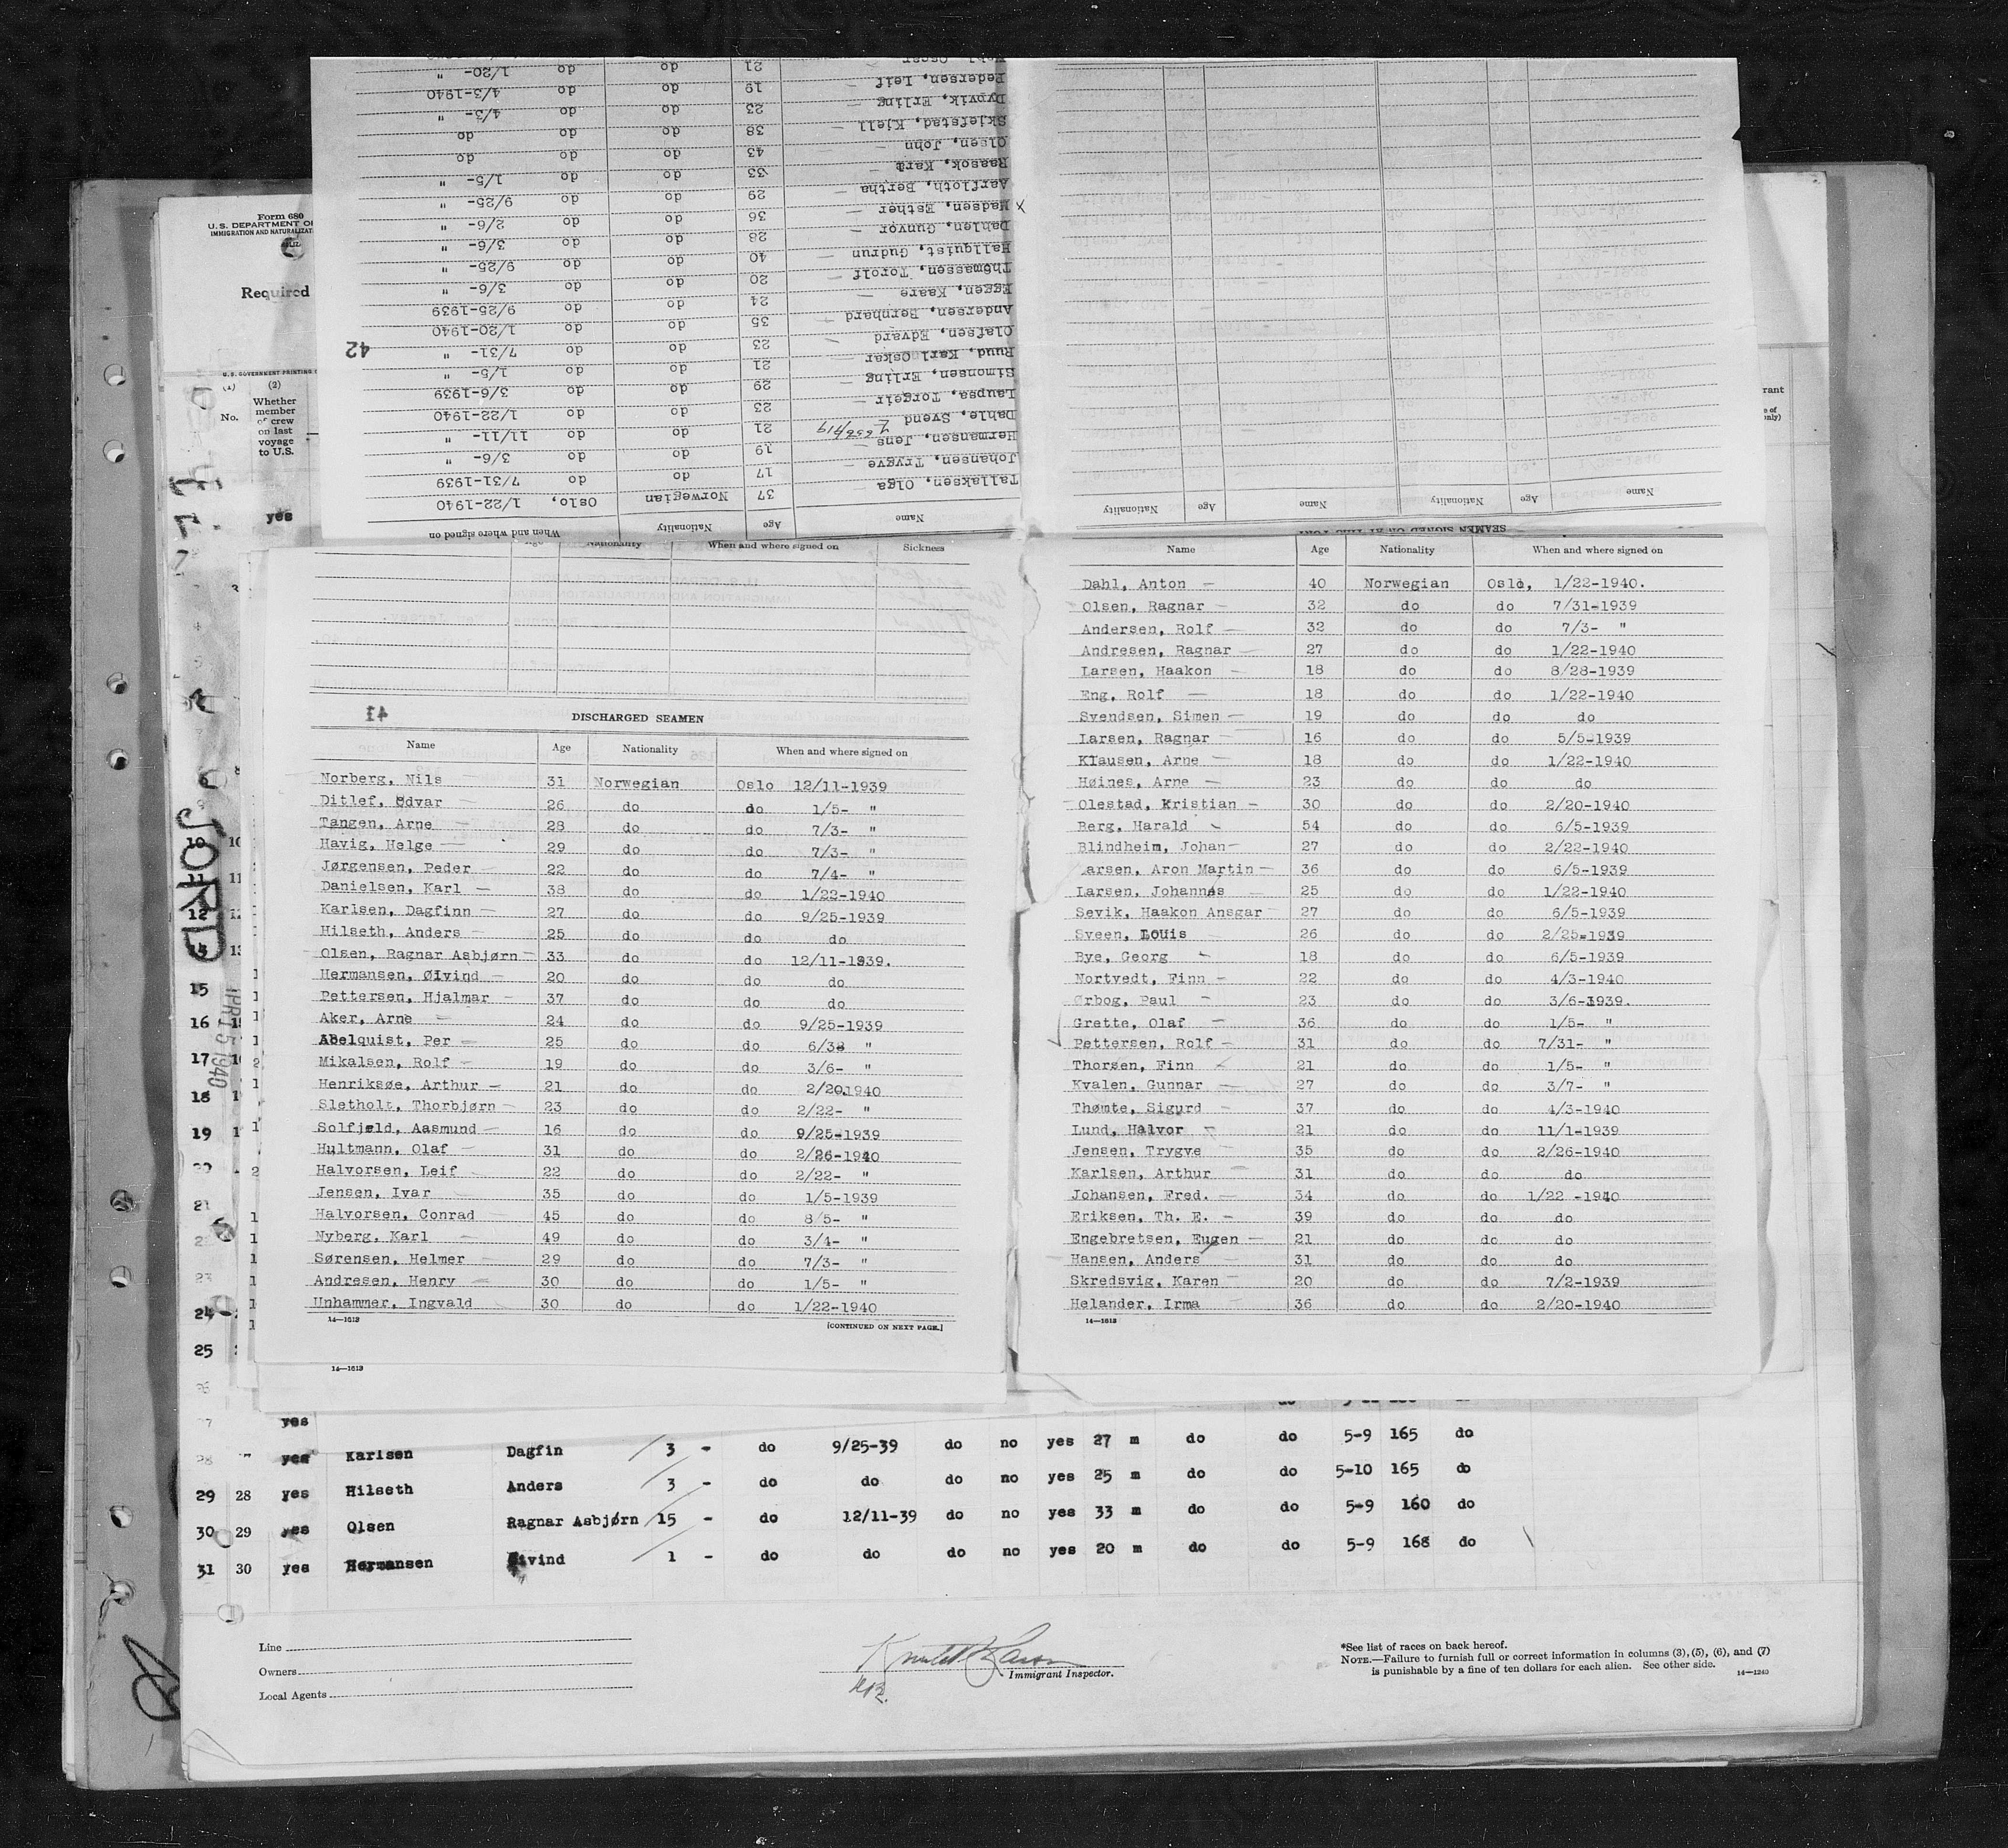 Form 680
U.S. DEPARTMENT OF
IMMIGRATION AND NATURALIZAT
Required
U.S. GOVERNMENT PRINTING
(1) (2)
No. Whether
member
of crew
on last
voyage
to U.S.
yes
42
Name Age Nationality When and where signed on
Tallaksen, Olga 37 Norwegian Oslo, 1/22-1940
Johansen, Trygve 17 do do 7/31-1939
Hermansen, Jens 19 do do 3/6- "
Dahle, Svend 21 do do 11/11- "
Laupsa, Torgeir 23 do do 1/22-1940
Simonsen, Erling 29 do do 3/6-1939
Ruud, Karl Oskar 21 do do 1/5- "
Olafsen, Edvard 23 do do 7/31- "
Andersen, Bernhard 35 do do 1/20-1940
Eggen, Kaare 24 do do 9/25-1939
Thomassen, Torolf 20 do do 3/6- "
Hallquist, Gudrun 40 do do 9/25- "
Dahlen, Gunvor 28 do do 3/6- "
Madsen, Esther 36 do do 2/6- "
Aarfloth, Bertha 29 do do 9/25- "
Raasok, Kare 33 do do 1/5- "
Olsen, John 43 do do do
Skjefstad, Kjell 38 do do do
Dypvik, Erling 23 do do 4/3- "
Pedersen, Leif 19 do do 4/3-1940
Oscar 21 do do 1/20- "
SEAMEN SIGNED ON AT THIS PORT
Name Age Nationality Name Age Nationality
Age Nationality When and where signed on Sickness
41
DISCHARGED SEAMEN
Name Age Nationality When and where signed on
Norberg, Nils 31 Norwegian Oslo 12/11-1939
Ditlef, Edvar 26 do do 1/5- "
Tangen, Arne 28 do do 7/3- "
Havig, Helge 29 do do 7/3- "
Jørgensen, Peder 22 do do 7/4- "
Danielsen, Karl 38 do do 1/22-1940
Karlsen, Dagfinn 27 do do 9/25-1939
Hilseth, Anders 25 do do do
Olsen, Ragnar Asbjørn 33 do do 12/11-1939.
Hermansen, Øivind 20 do do do
Pettersen, Hjalmar 37 do do do
Aker, Arne 24 do do 9/25-1939
Abelquist, Per 25 do do 6/3 "
Mikalsen, Rolf 19 do do 3/6- "
Henriksøe, Arthur 21 do do 2/20.1940
Sletholt, Thorbjørn 23 do do 2/22- "
Solfjeld, Aasmund 16 do do 9/25-1939
Hultmann, Olaf 31 do do 2/26-1940
Halvorsen, Leif 22 do do 2/22- "
Jensen, Ivar 35 do do 1/5-1939
Halvorsen, Conrad 45 do do 8/5- "
Nyberg, Karl 49 do do 3/4- "
Sørensen, Helmer 29 do do 7/3- "
Andresen, Henry 30 do do 1/5- "
Unhammer, Ingvald 30 do do 1/22-1940
14—1613
[CONTINUED ON NEXT PAGE.]
14—1613
Name Age Nationality When and where signed on
Dahl, Anton 40 Norwegian Oslo, 1/22-1940.
Olsen, Ragnar 32 do do 7/31-1939
Andersen, Rolf 32 do do 7/3- "
Andresen, Ragnar 27 do do 1/22-1940
Larsen, Haakon 18 do do 8/28-1939
Eng, Rolf 18 do do 1/22-1940
Svendsen, Simen 19 do do do
Larsen, Ragnar 16 do do 5/5-1939
Klausen, Arne 18 do do 1/22-1940
Høines, Arne 23 do do do
Olestad, Kristian 30 do do 2/20-1940
Berg, Harald 54 do do 6/5-1939
Blindheim, Johan 27 do do 2/22-1940
arsen, Aron Martin 36 do do 6/5-1939
Larsen, Johannes 25 do do 1/22-1940
Sevik, Haakon Ansgar 27 do do 6/5-1939
Sveen, Louis 26 do do 2/25-1939
Bye, Georg 18 do do 6/5-1939
Nortvedt, Finn 22 do do 4/3-1940
Ørbog, Paul 23 do do 3/6-1939.
Grette, Olaf 36 do do 1/5- "
Pettersen, Rolf 31 do do 7/31- "
Thorsen, Finn 21 do do 1/5- "
Kvalen, Gunnar 27 do do 3/7- "
Thømte, Sigurd 37 do do 4/3-1940
Lund, Halvor 21 do do 11/1-1939
Jensen, Trygve 35 do do 2/26-1940
Karlsen, Arthur 31 do do do
Johansen, Fred. 34 do do 1/22 -1940
Eriksen, Th. E. 39 do do do
Engebretsen, Eugen 21 do do do
Hansen, Anders 31 do do do
Skredsvig, Karen 20 do do 7/2-1939
Helander, Irma 36 do do 2/20-1940
14—1613
JORD
APR 15 1940
10
11
12
15
16
17
18
19
21
23
24
25
yes
yes Karlsen Dagfin 3 - do 9/25-39 do no yes 27 m do do 5-9 165 do
29 28 yes Hilseth Anders 3 - do do do no yes 25 m do do 5-10 165 do
30 29 yes Olsen Ragnar Asbjørn 15 - do 12/11-39 do no yes 33 m do do 5-9 160 do
31 30 yes Hermansen Øivind 1 - do do do no yes 20 m do do 5-9 168 do
Line
Owners
Local Agents
Immigrant Inspector.
*See list of races on back hereof.
NOTE.—Failure to furnish full or correct information in columns (3), (5), (6), and (7)
is punishable by a fine of ten dollars for each alien. See other side. 14—1240